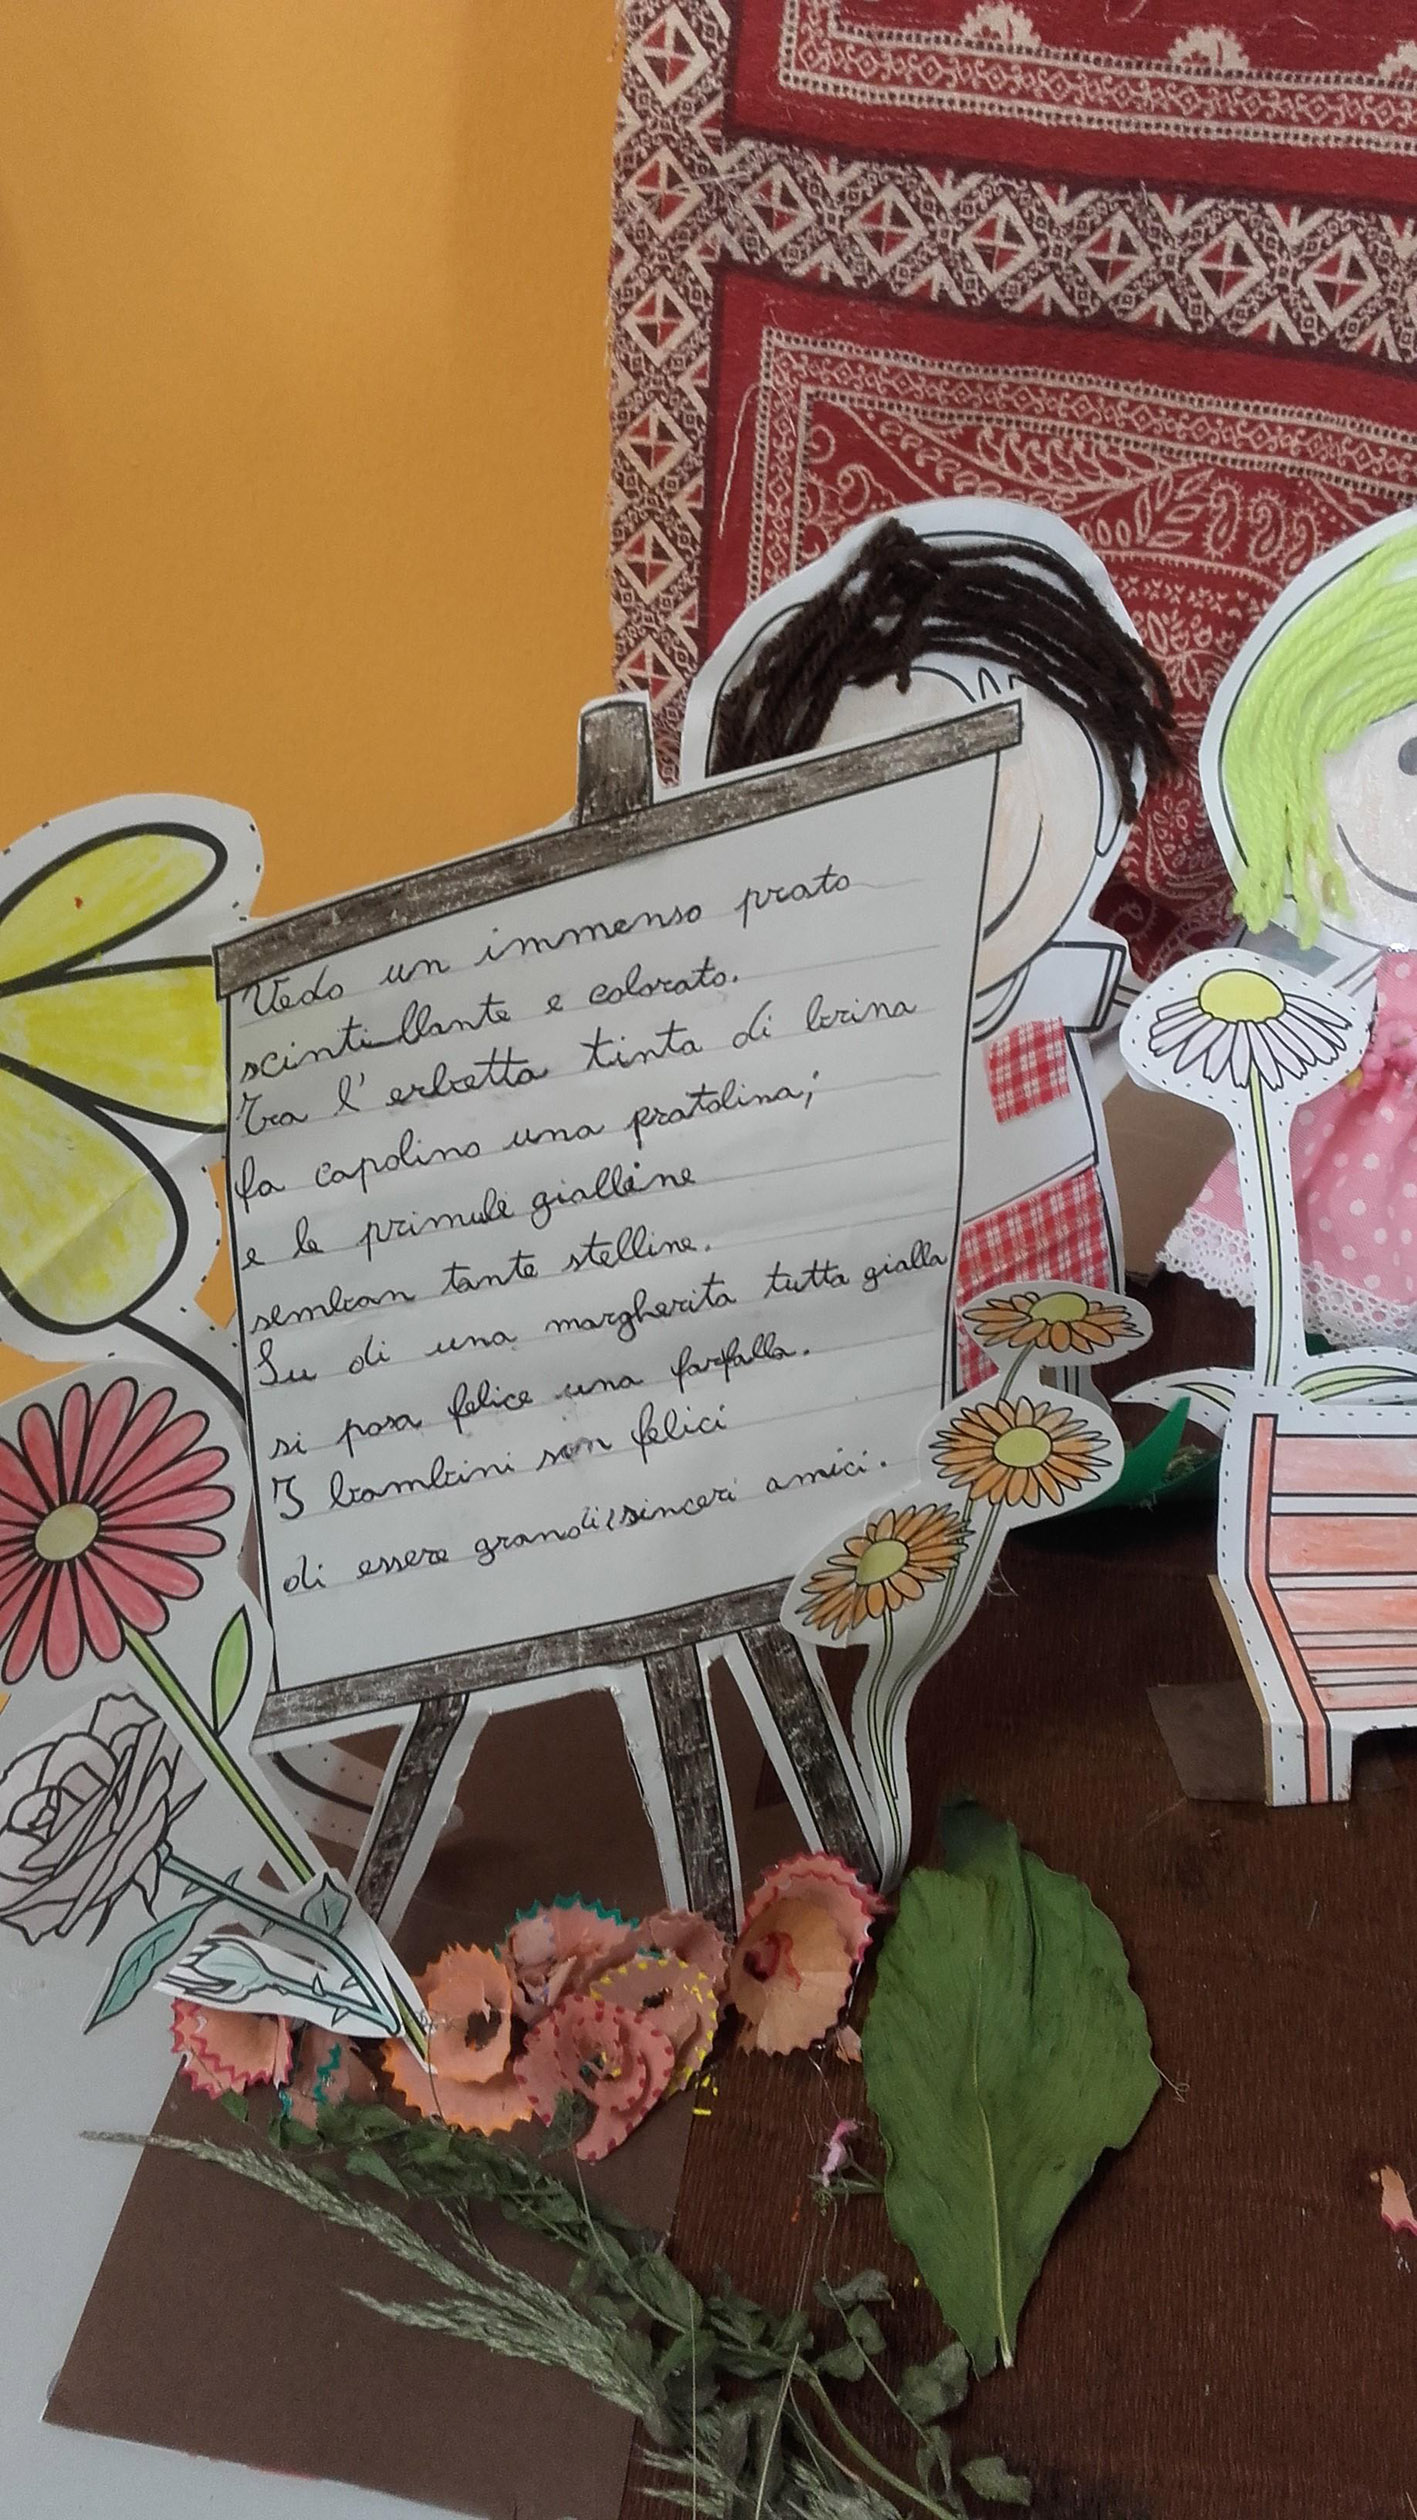 Vedo un immenso prato
scintillante e colorato.
Tra l'erbetta tinta di brina
fa capolino una pratolina;
e le primule gialline
sembran tante stelline.
Su di una margherita tutta gialla
si posa felice una farfalla.
I bambini son felici
di essere grandi, sinceri amici.